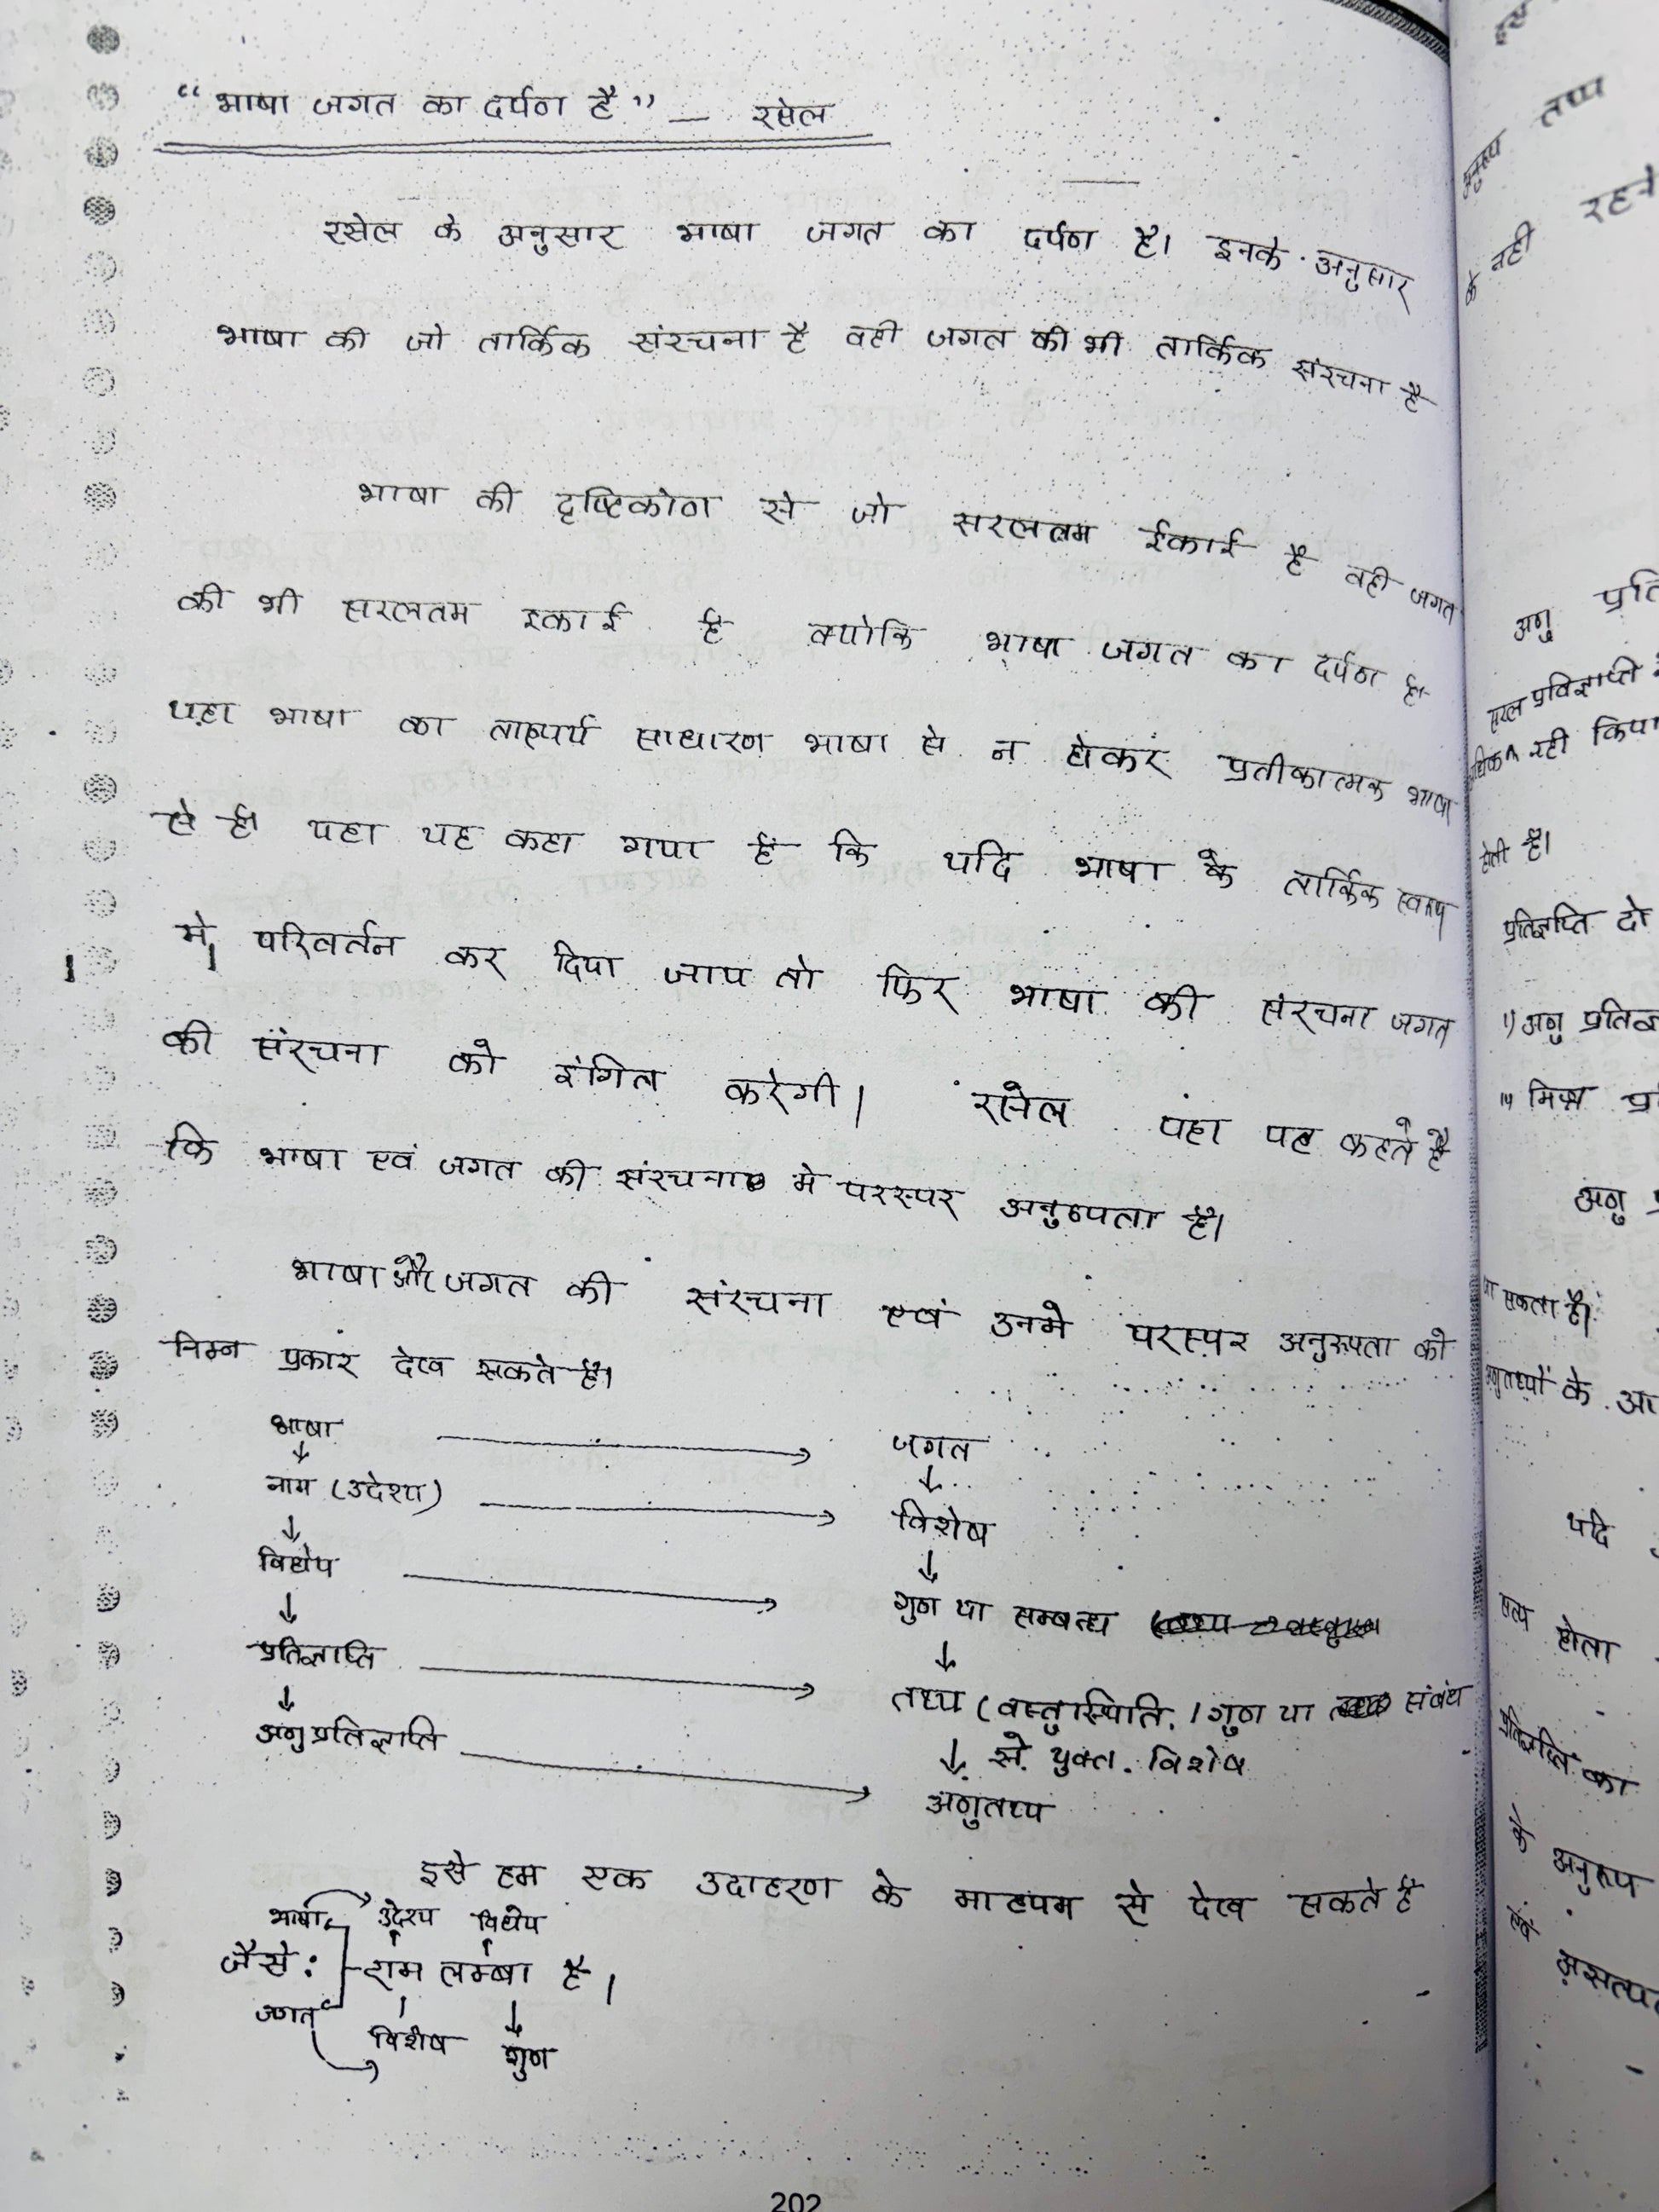 “भाषा जगत का दर्पण है” — रसेल
रसेल के अनुसार भाषा जगत का दर्पण है। इनके अनुसार
भाषा की जो तार्किक संरचना है वही जगत की भी तार्किक संरचना है
भाषा की दृष्टिकोण से जो सरलतम ईकाई है वही जगत
की भी सरलतम इकाई है क्योकि भाषा जगत का दर्पण है।
यहा भाषा का तात्पर्य साधारण भाषा से न होकर प्रतीकात्मक भाषा
से है। यहा यह कहा गया है कि यदि भाषा के तार्किक स्वरूप
मे परिवर्तन कर दिया जाय तो फिर भाषा की संरचना जगत
की संरचना को इंगित करेगी। रसेल यहा यह कहते है
कि भाषा एवं जगत की संरचना मे परस्पर अनुरूपता है।
भाषा और जगत की संरचना एवं उनमे परस्पर अनुरूपता को
निम्न प्रकार देख सकते है।
भाषा → जगत
↓ ↓
नाम (उदेश्य) → विशेष
↓ ↓
विधेय → गुण या सम्बन्ध
↓ ↓
प्रतिज्ञाप्ति → तथ्य (वस्तुस्थिति / गुण या संबंध
↓ से युक्त विशेष
अणुप्रतिज्ञाप्ति → अणुतथ्य
इसे हम एक उदाहरण के माध्यम से देख सकते है
भाषा उदेश्य विधेय
जैसे: राम लम्बा है।
जगत विशेष गुण
202
इस
तथ्य
अनुरूप
रहने
के नही
अणु प्रति
सरल
नही किया
होती है।
प्रतिज्ञप्ति दो
अणु
मिश्र
अणु
सकता है।
के आ
यदि
सत्य होता
प्रतिज्ञप्ति का
के अनुरूप
एवं
असत्य